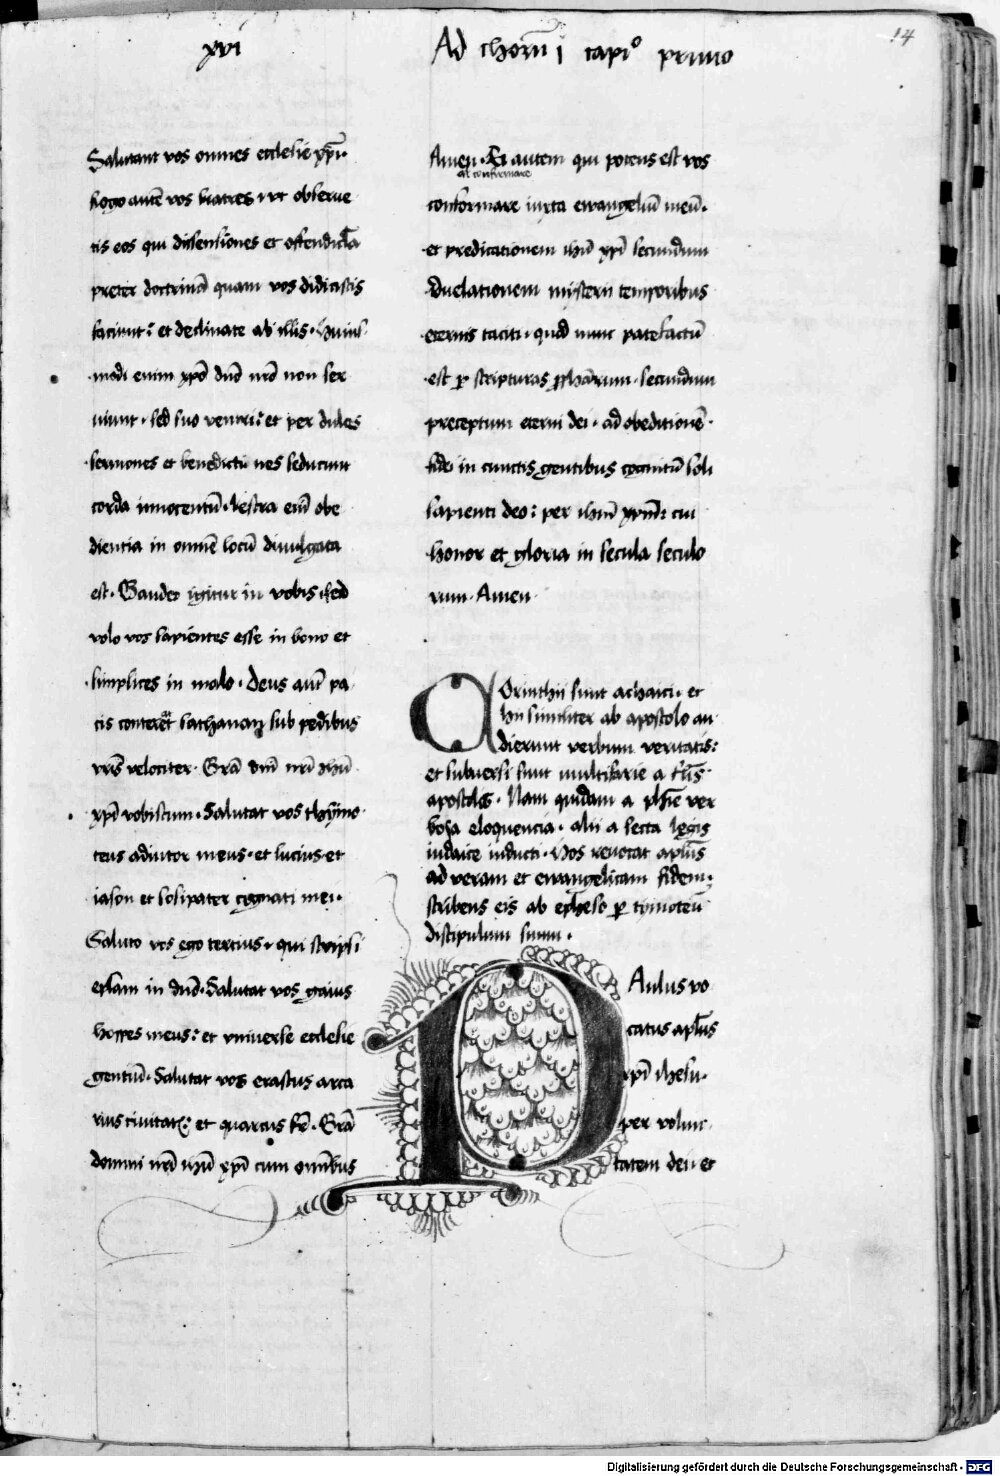 xvi
Ad choru̅ i capi° primo
14
Salutant vos omnes ecclesie xp̅i.
Rogo aute̅ vos fratres ut observe
tis eos qui dissensiones et offendicl̅a
preter doctrina̅ quam vos didicistis
faciunt: et declinate ab illis. Huius
modi enim xp̅o dn̅o nr̅o non ser
viunt. sed suo ventri: et per dulces
sermones et benedictiones seducunt
corda innocentiu̅. Vestra eni̅ obe
dientia in omne̅ locu̅ divulgata
est. Gaudeo igitur in vobis. sed
volo vos sapientes esse in bono et
simplices in malo. Deus aut̅ pa
cis conteret sathanan sub pedibus
vr̅is velociter. Gr̅a dn̅i nr̅i ihu̅
xp̅i vobiscum. Salutat vos thymo
teus adiutor meus. et lucius et
iason et sosipater cognati mei.
Saluto vos ego tertius. qui scripsi
ep̅lam in dn̅o. Salutat vos gaius
hospes meus: et universe ecclesie
gentiu̅. Salutat vos erastus arca
rius civitat: et quartus fr̅. Gr̅a
domini nr̅i ihu̅ xp̅i cum omnibus
Amen. Ei autem qui potens est vos
al confirmare
conformare iuxta ewangeliu̅ meu̅.
et predicationem ihu̅ xp̅i secundum
revelationem misterii temporibus
eternis taciti. quod nunc patefactu̅
est p̲ scripturas p̲phetarum. secundum
preceptum eterni dei. ad obeditione̅
fidei in cunctis gentibus cognitu̅ soli
sapienti deo: per ihm̅ xpm̅: cui
honor et gloria in secula seculo
rum. Amen
Corinthii sunt achaici. et
hii similiter ab apostolo au
dierunt verbum veritatis:
et subversi sunt multifarie a
apostolis. Nam quidam a ver
bosa eloquencia. alii a secta legis
iudaice inducti. Hos revocat ap̅lus
ad veram et ewangelicam fidem.
scribens eis ab epheso p̲ tymoteu̅
discipulum suum.
PAulus vo
catus ap̅lus
xp̅i ihesu.
per volun
tatem dei et
Digitalisierung gefördert durch die Deutsche Forschungsgemeinschaft - DFG